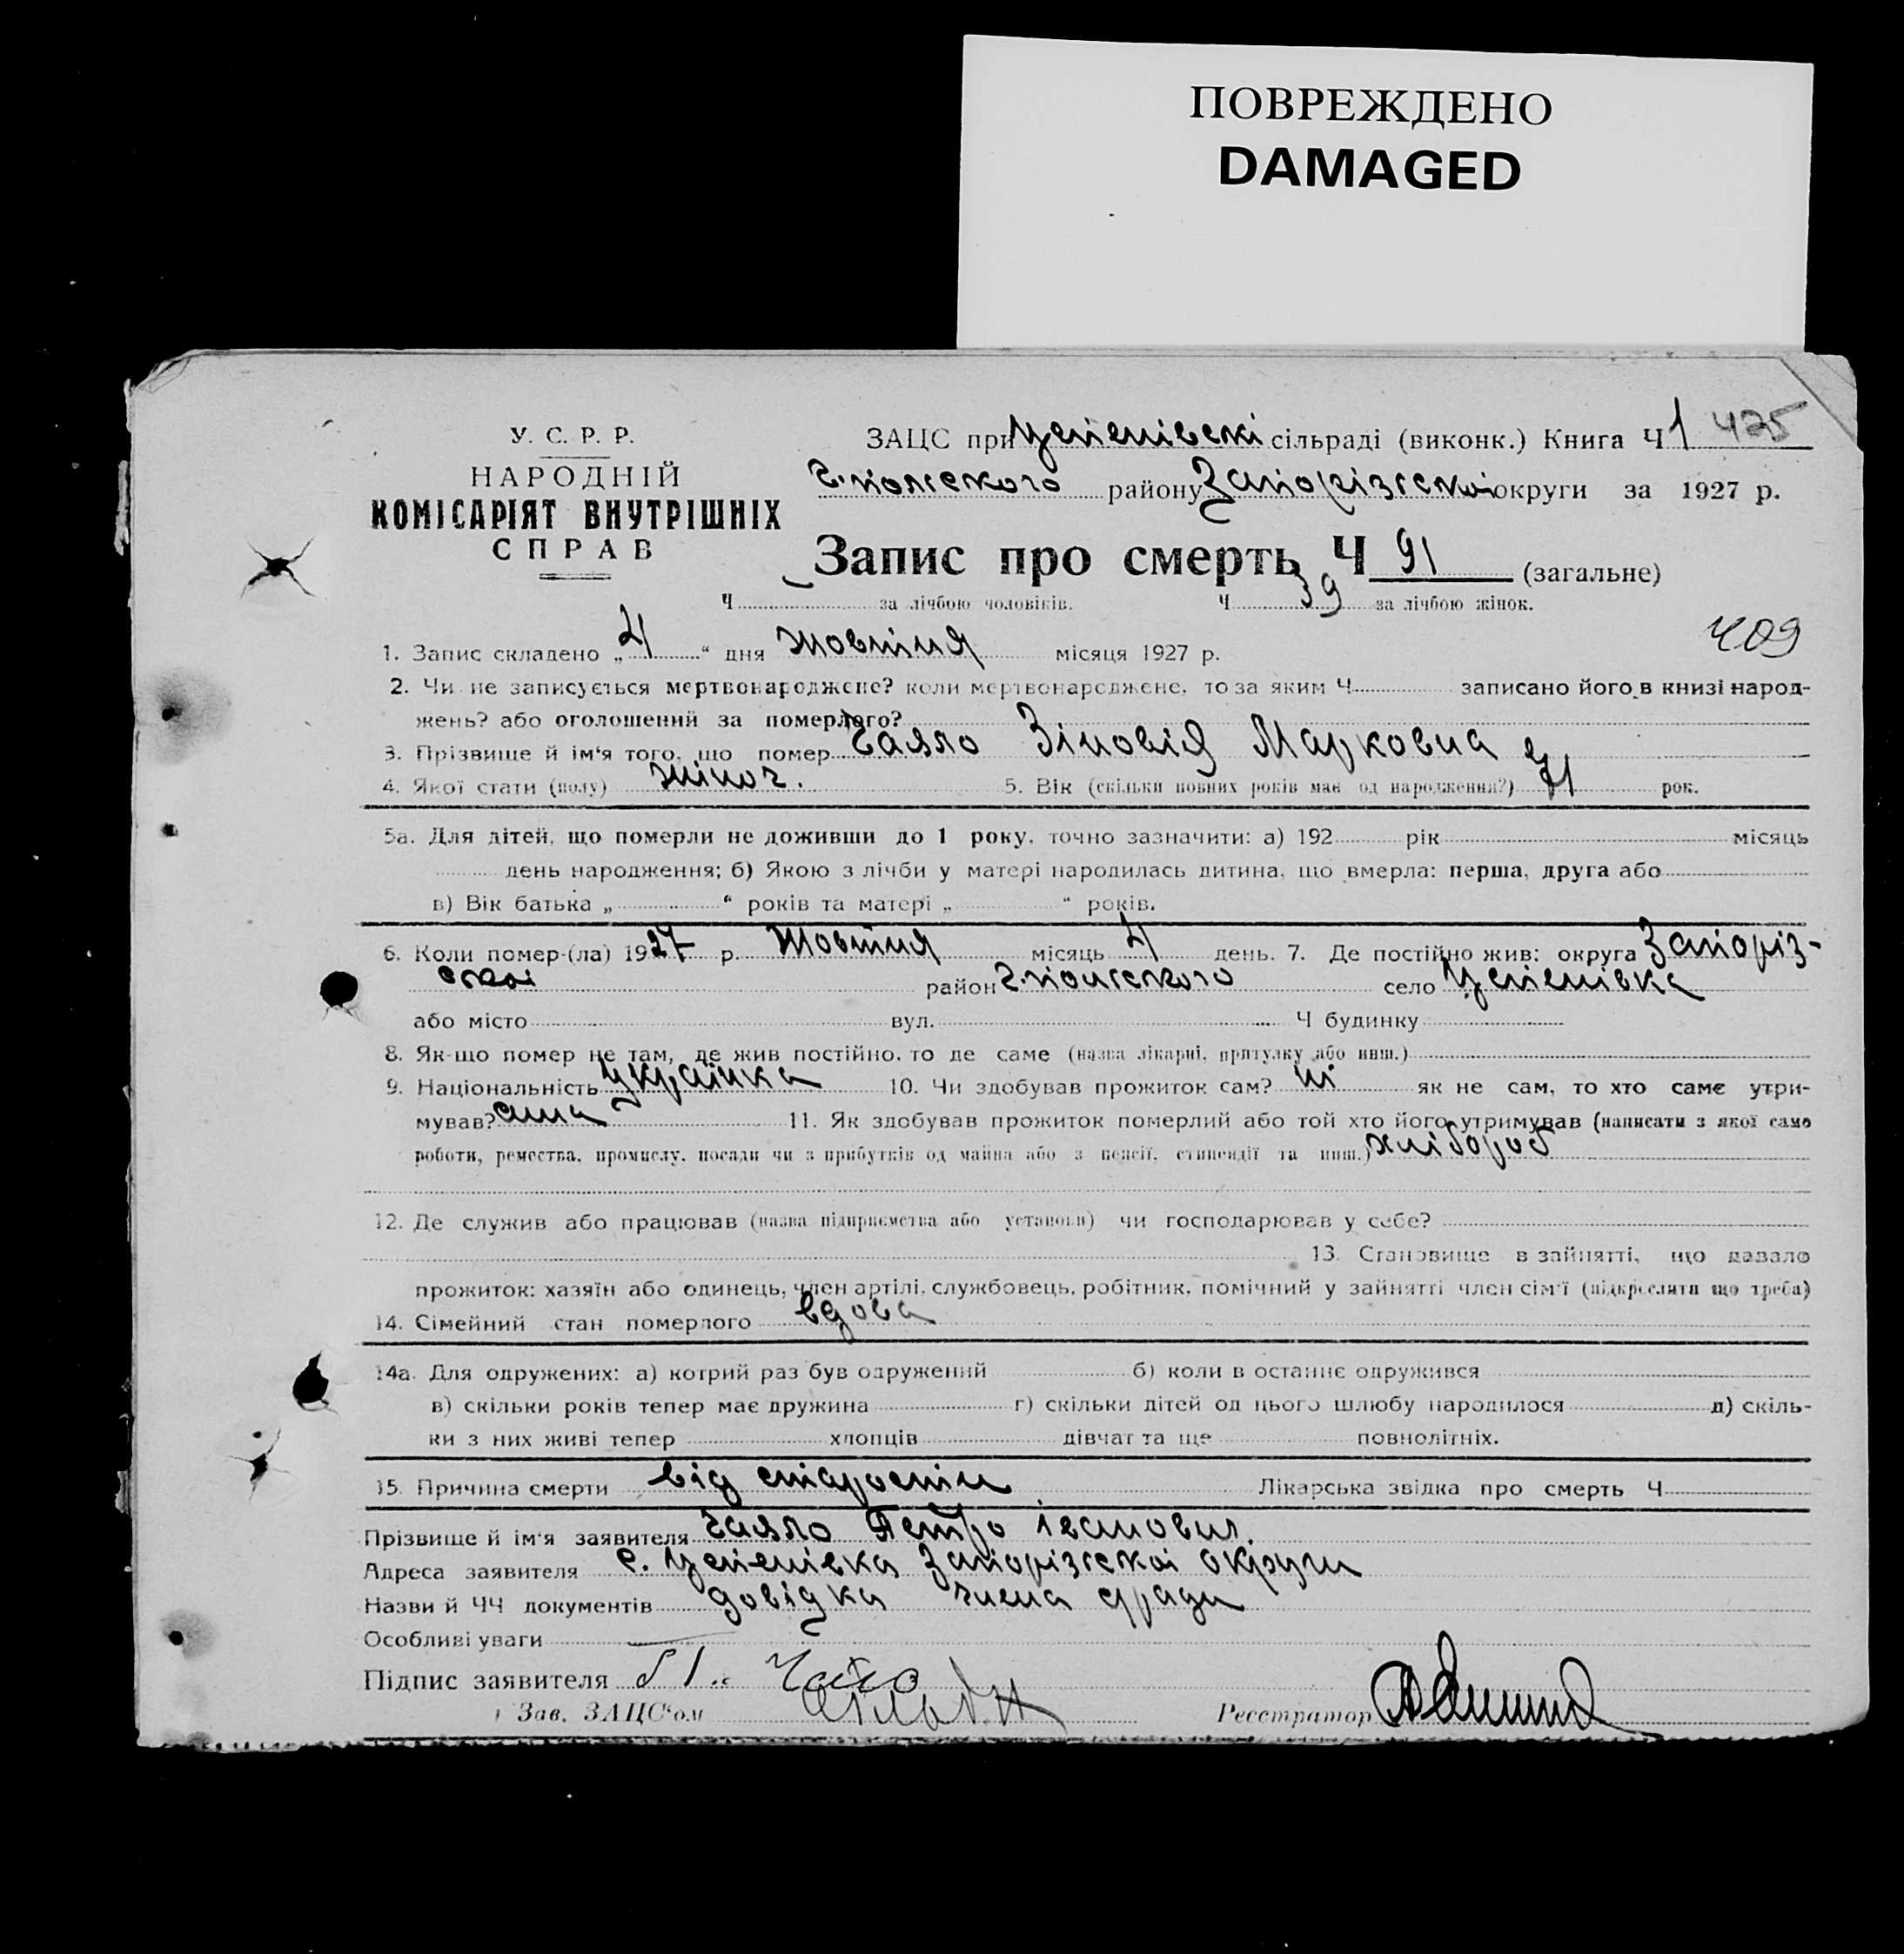 ПОВРЕЖДЕНО
DAMAGED
У. С. Р. Р.
НАРОДНІЙ
КОМІСАРІЯТ ВНУТРІШНІХ
СПРАВ
ЗАЦС при Успенівскі сільраді (виконк.) Книга Ч 1 425
Г.-польского району Запорізскоі округи за 1927 р.
Запис про смерть Ч 91 (загальне)
Ч за лічбою чоловіків. Ч 39 за лічбою жінок.
409
1. Запис складено „ 4 “ дня жовтня місяця 1927 р.
2. Чи не записується мертвонароджене? коли мертвонароджене, то за яким Ч записано його в книзі народ-
жень? або оголошений за померлого?
3. Прізвище й ім'я того, що помер Зіновія Марковна
4. Якої стати (полу) жіноч. 5. Вік (скільки повних років має од народження?) 71 рок.
5а. Для дітей, що померли не доживши до 1 року, точно зазначити: а) 192 рік місяць
день народження; б) Якою з лічби у матері народилась дитина, що вмерла: перша, друга або
в) Вік батька „ “ років та матері „ “ років.
6. Коли помер-(ла) 1927 р. Жовтня місяць 4 день. 7. Де постійно жив: округа Запоріз-
скоі район Г.-польского село Успенівка
або місто вул. Ч будинку
8. Як-що помер не там, де жив постійно, то де саме (назва лікарні, притулку або инш.)
9. Національність українка 10. Чи здобував прожиток сам? ні як не сам, то хто саме утри-
мував? 11. Як здобував прожиток померлий або той хто його утримував (написати з якої само
роботи, ремества, промислу, посади чи з прибутків од майна або з пенсії, стипендії та инш.) хлібороб
12. Де служив або працював (назва підприємства або установи) чи господарював у себе?
13. Становище в зайнятті, що давало
прожиток: хазяїн або одинець, член артілі, службовець, робітник, помічний у зайнятті член сім'ї (підкреслити що треба)
14. Сімейний стан померлого вдова
14а. Для одружених: а) котрий раз був одружений б) коли в останнє одружився
в) скільки років тепер має дружина г) скільки дітей од цього шлюбу народилося д) скіль-
ки з них живі тепер хлопців дівчат та ще повнолітніх.
15. Причина смерти від старости Лікарська звідка про смерть Ч
Прізвище й ім'я заявителя Петро Іванович
Адреса заявителя с. Успенівка Запорізскоі округи
Назви й ЧЧ документів довідка члена с/ради
Особливі уваги
Підпис заявителя
Зав. ЗАЦС'ом Реєстратор